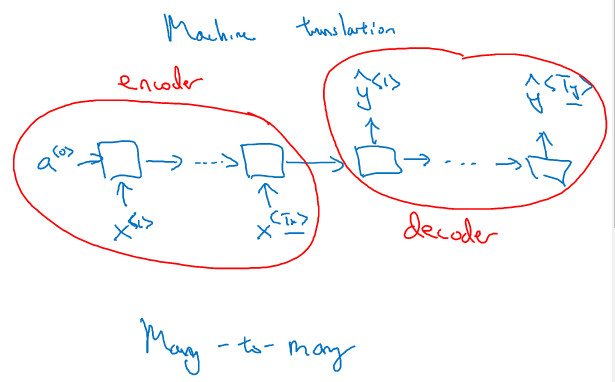 Machine translation
encoder
ŷ<1> ŷ<Ty>
a<0> ....
x<1> x<Tx>
...
decoder
Many-to-many